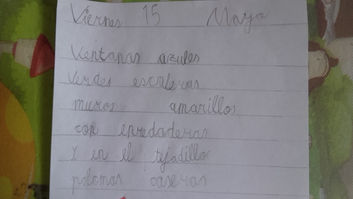 Viernes 15 Mayo
Ventanas azules
verdes escaleras
muros amarillos
con enredaderas
y en el tejadillo
palomas caseras